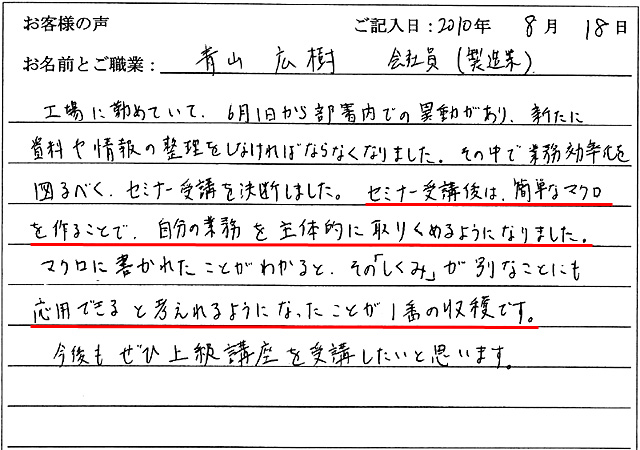 お客様の声 ご記入日：2010年 8月 18日
お名前とご職業： 青山 広樹 会社員（製造業）
工場に勤めていて、6月1日から部署内での異動があり、新たに
資料や情報の整理をしなければならなくなりました。その中で業務効率化を
図るべく、セミナー受講を決断しました。 セミナー受講後は、簡単なマクロ
を作ることで、自分の業務を主体的に取りくめるようになりました。
マクロに書かれたことがわかると、その「しくみ」が別なことにも
応用できると考えれるようになったことが1番の収穫です。
今後もぜひ上級講座を受講したいと思います。